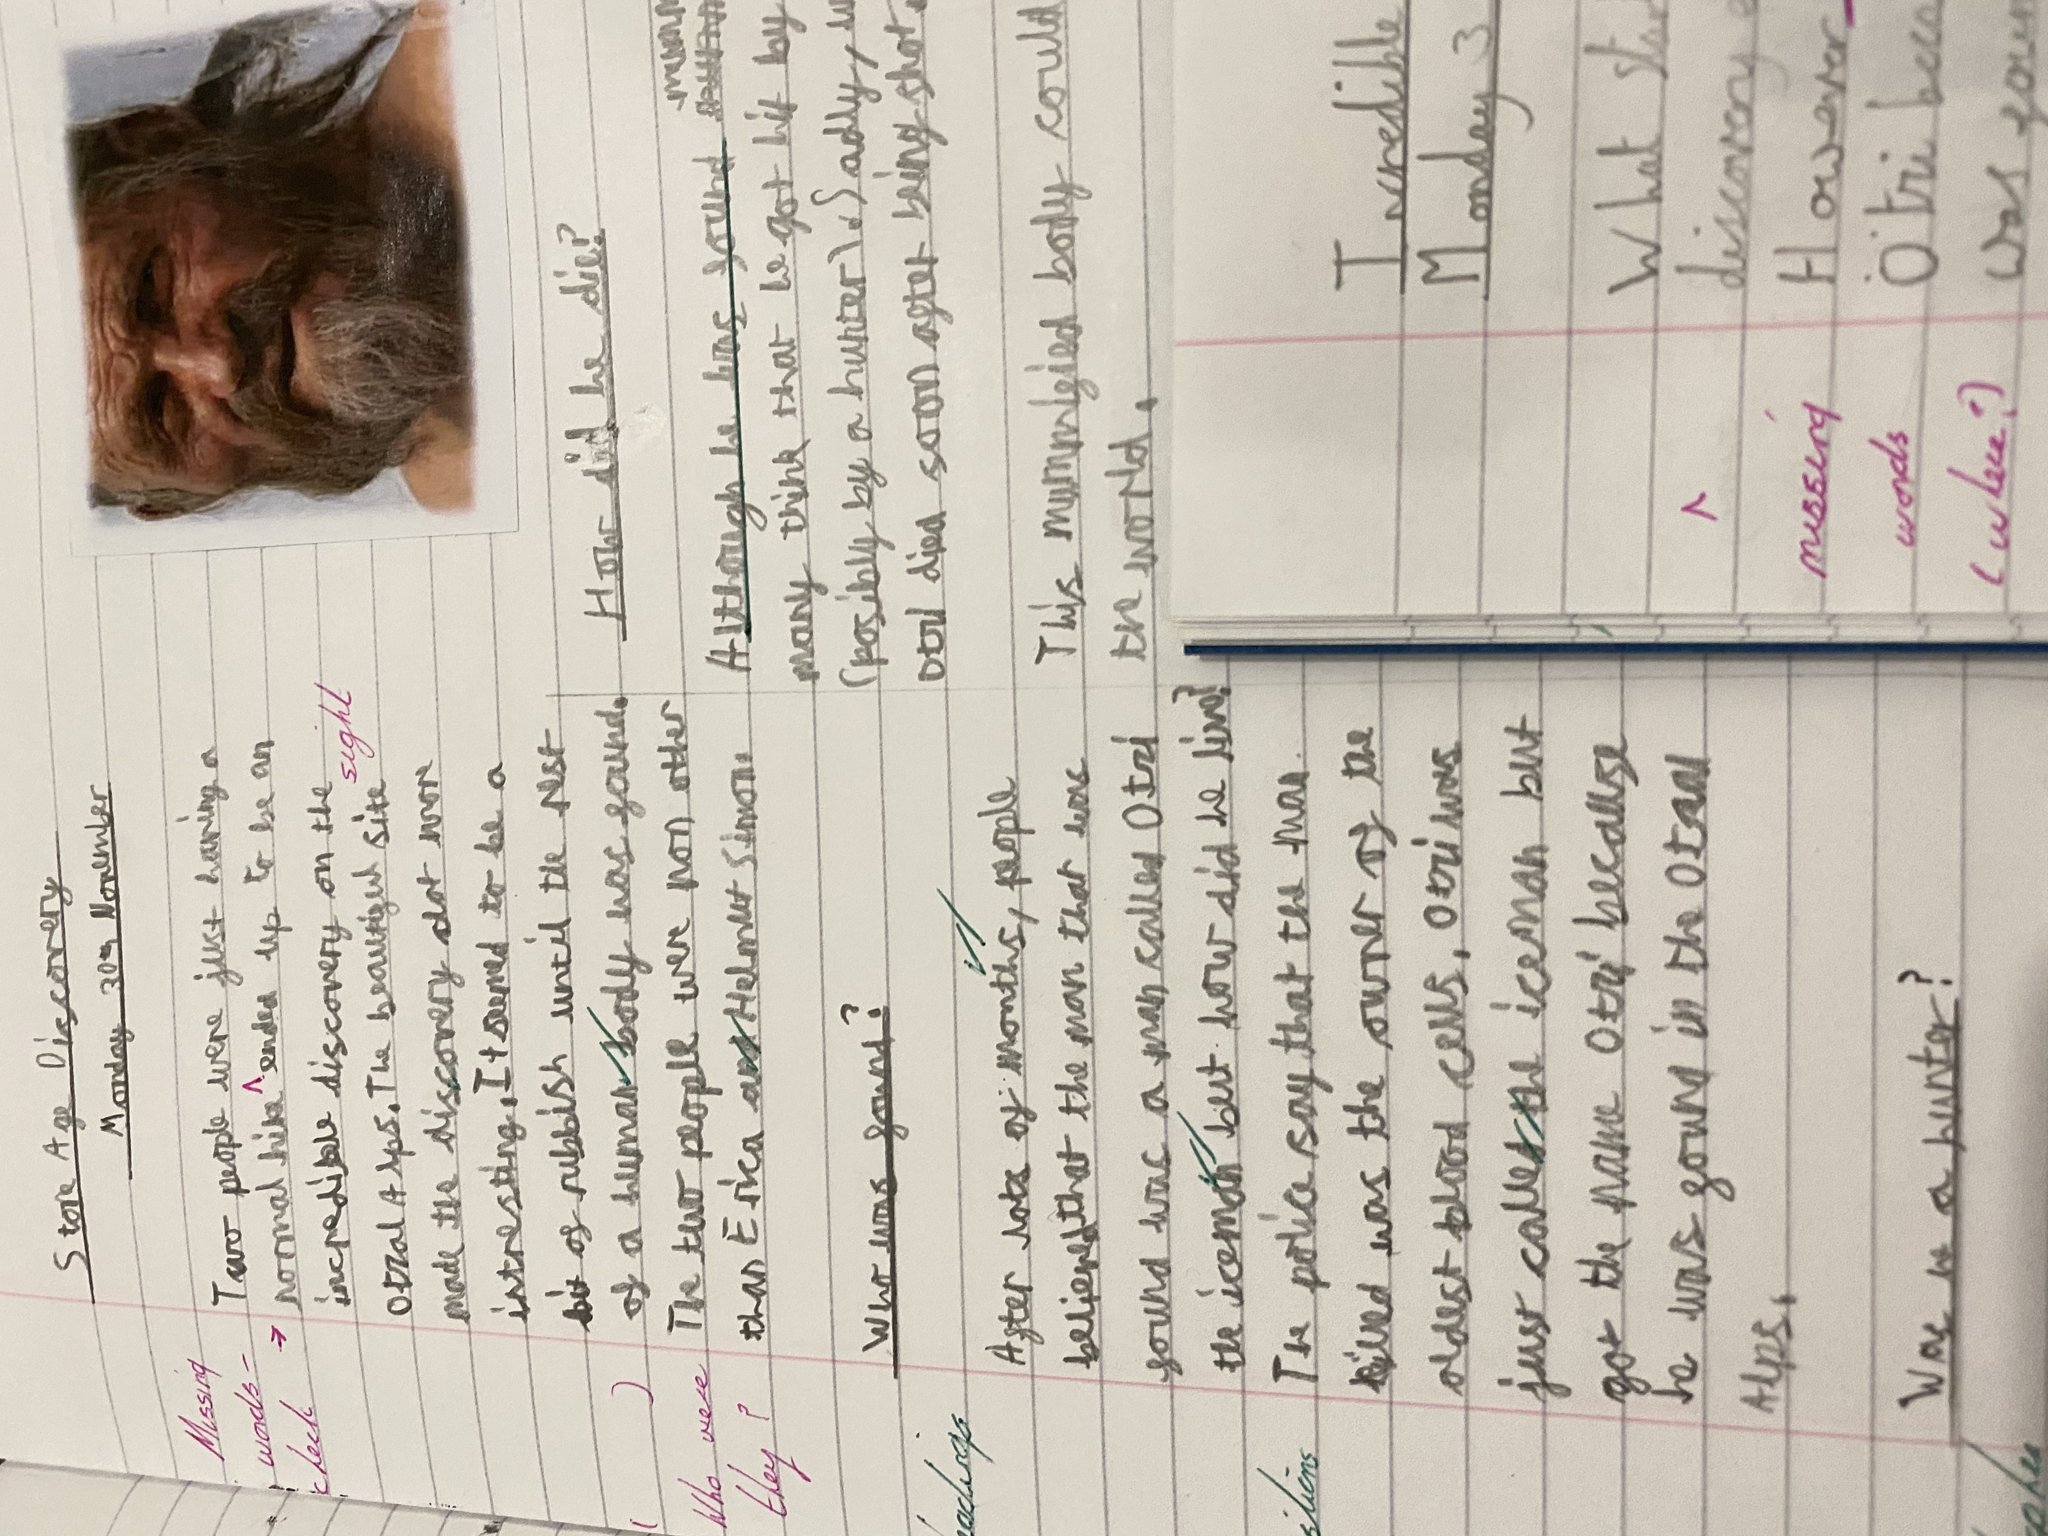 Stone Age Discovery
Monday 30th November
Missing
words-
check
Two people were just having a
normal hike ^ ended up to be an
incredible discovery on the
sight
Otzal Alps. The beautiful site
made the discovery alot more
intresting. It seemed to be a
bit of rubbish until the rest
of a human body was found.
( )
Who were
they?
The two people were non other
than Erica and Helmut Simon.
Who was found?
After lots of months, people
believed that the man that was
found was a man called Otzi
the iceman but how did he live?
The police say that the man
killed was the owner of the
oldest blood cells. Otzi was
just called the iceman but
got the name Otzi because
he was found in the Otzaal
Alps.
Was he a hunter?
How did he die?
Although he was found
many think that he got hit by
(posibly by a hunter). Sadly,
Otzi died soon after being shot.
This mummified body could
the world.
Incredible
Monday 3
What star
discovery
^
missing
words
(where?)
However
Ötzi beca
was foun